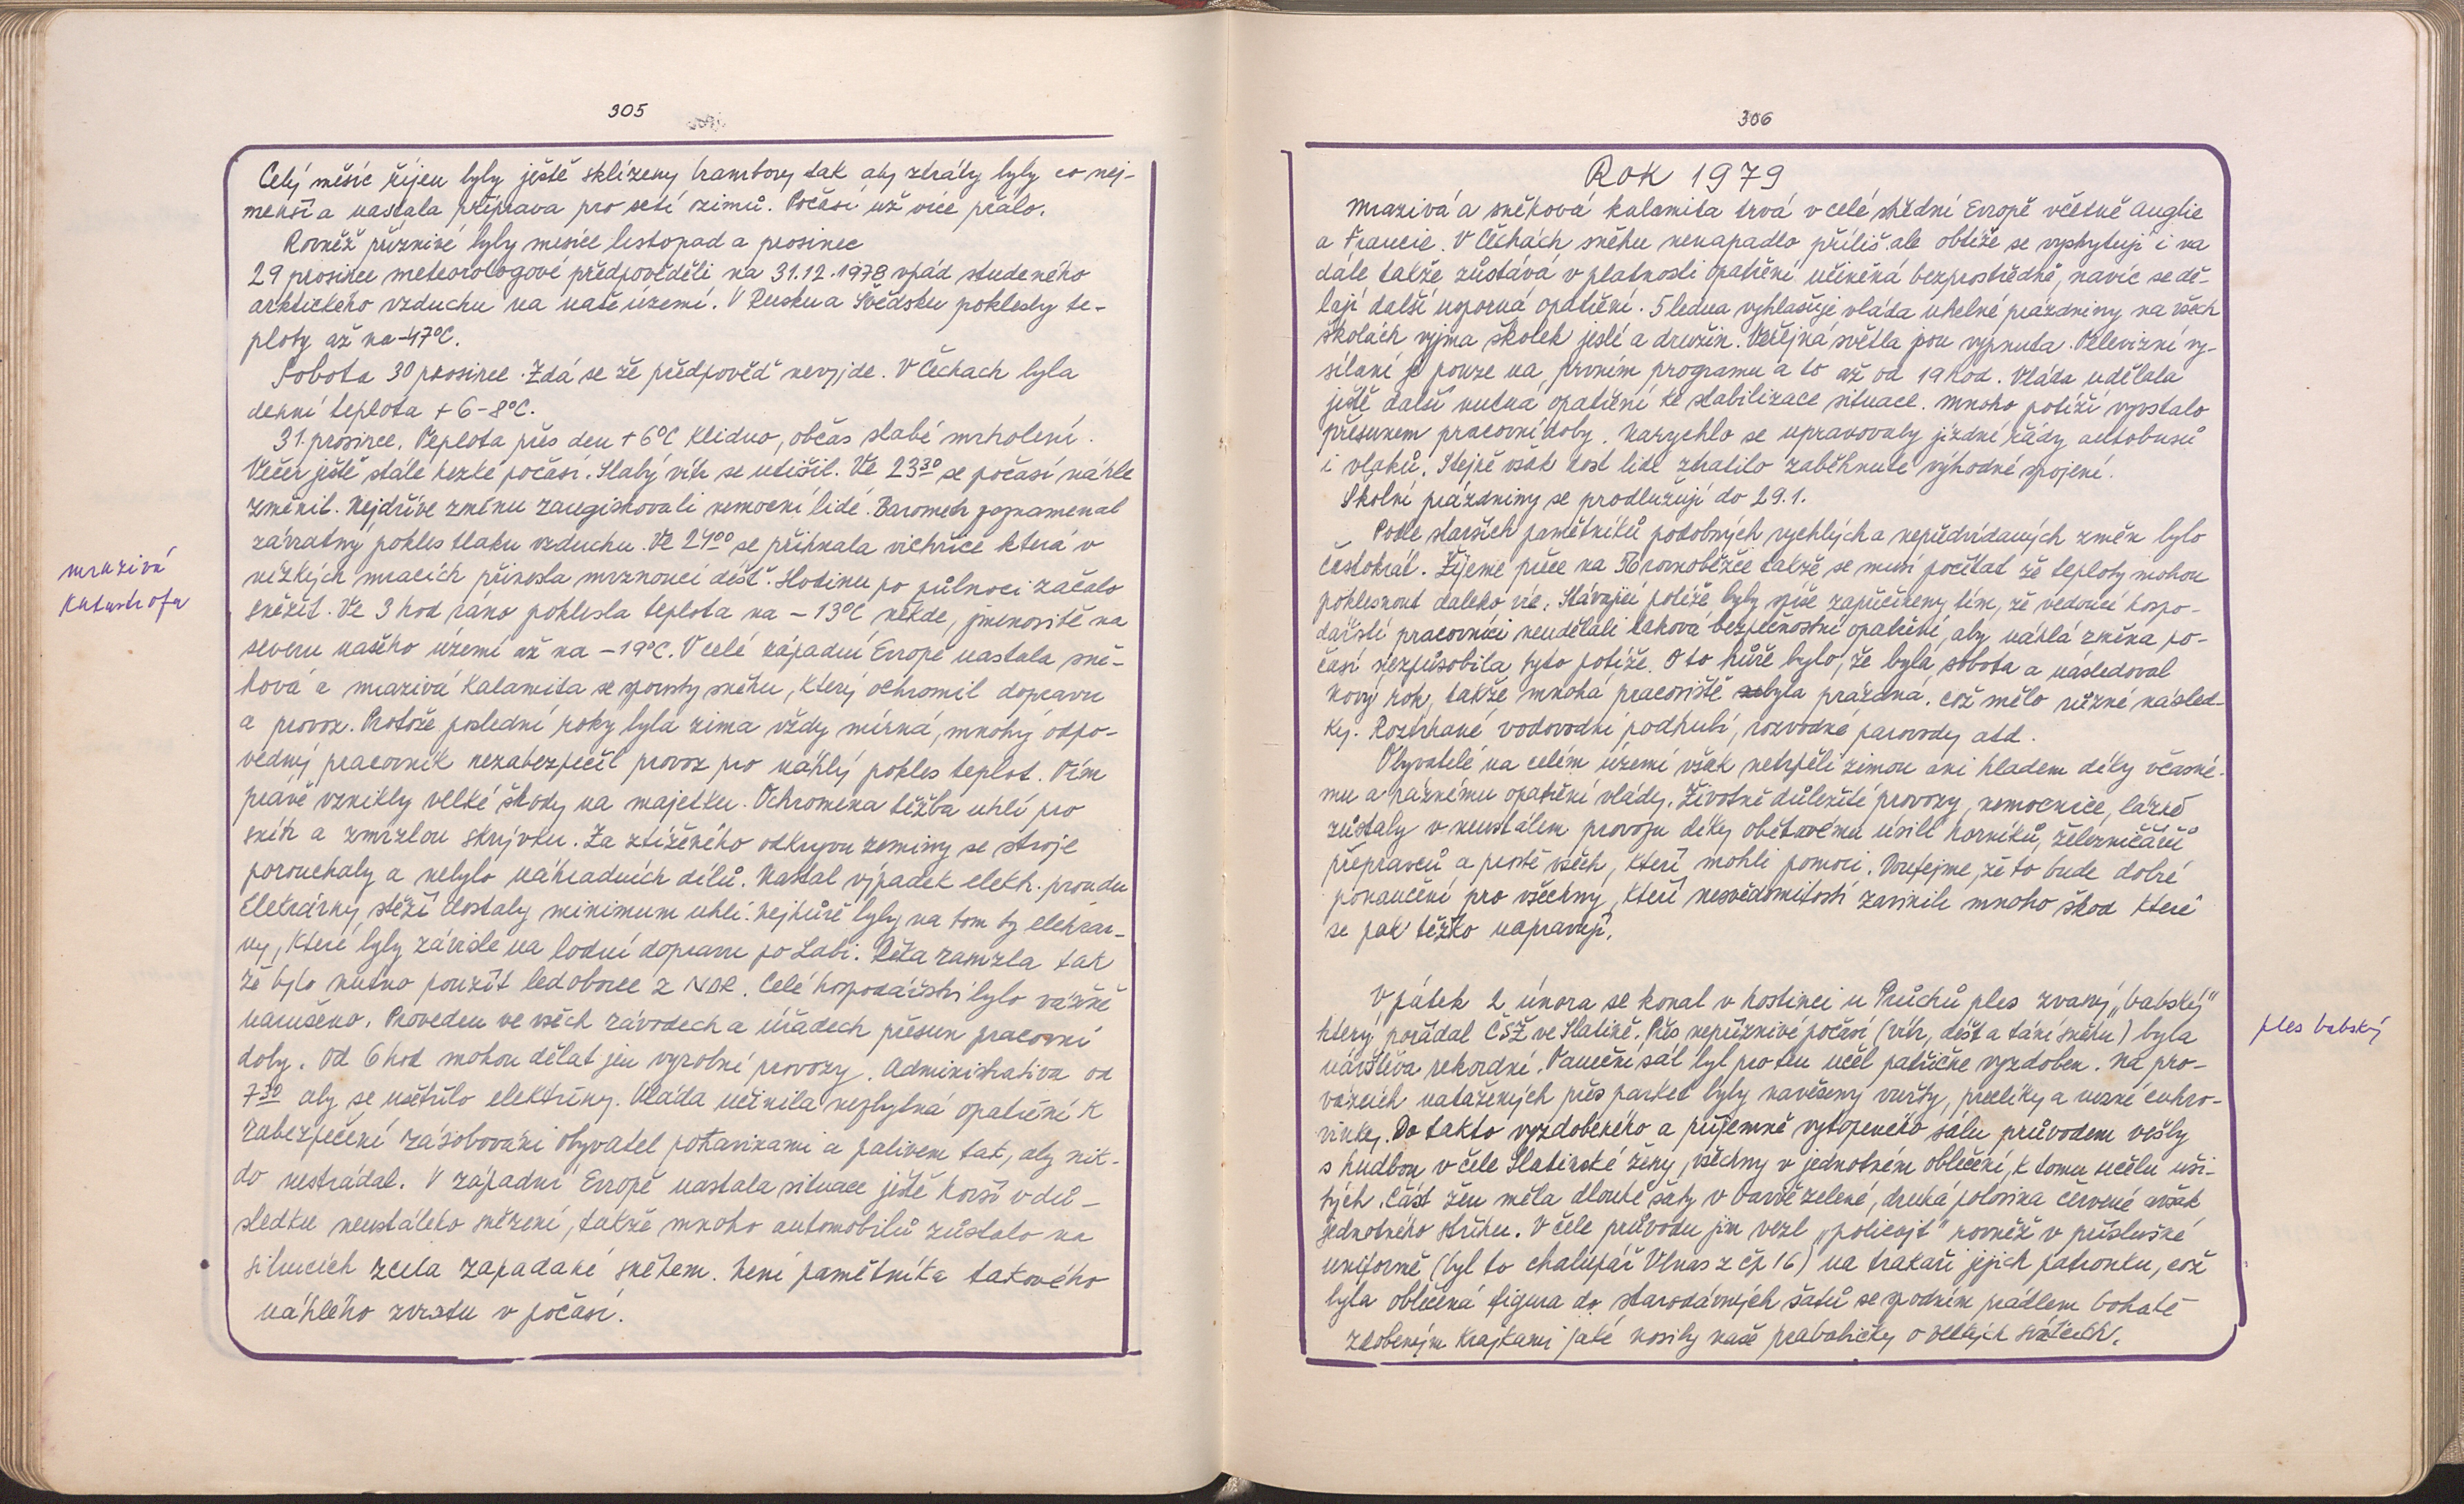 305
Celý měsíc říjen byly ještě sklízeny brambory tak aby ztráty byly co nej-
menší a nastala příprava pro setí ozimů. Počasí už více přálo.
Rovněž příznivé byly mesíce listopad a prosinec
29 prosince meteorologové předpověděli na 31.12.1978 vpád studeného
arktického vzduchu na naše území. V Rusku a Švédsku poklesly te-
ploty až na -47°C.
Sobota 30 prosince. Zdá se že předpověď nevyjde. V Čechach byla
denní teplota + 6-8°C.
31. prosince. Teplota přes den + 6°C Klidno, občas slabé mrholení.
Večer ještě stále hezké počasí. Slabý vítr se utišil. Ve 23 30 se počasí náhle
změnil. Nejdříve změnu zaregistrovali nemocní lidé. Barometr poznamenal
závratný pokles tlaku vzduchu. Ve 24 00 se přihnala vichřice která v
nízkých mracích přinesla mrznoucí déšť. Hodinu po půlnoci začalo
mrazivá
katastrofa
sněžit. Ve 3 hod ráno poklesla teplota na - 13°C někde, jmenovitě na
severu našeho území až na - 19°C. V celé západní Evropě nastala sně-
hová a mrazivá kalamita se spousty sněhu, který ochromil dopravu
a provoz. Protože poslední roky byla zima vždy mírná, mnohý odpo-
vědný pracovník nezabezpečil provoz pro náhlý pokles teplot. Tím
právě vznikly velké škody na majetku. Ochromena těžba uhlí pro
sníh a zmrzlou skrývku. Za ztíženého odkryvu zeminy se stroje
porouchaly a nebylo náhradních dílů. Nastal výpadek elektr. proudu
Eletrárny stěží dostaly minimum uhlí. Nejhůře byly na tom ty elektrár-
ny, které byly závisle na lodní dopravu po Labi. Řeka zamzla tak
že bylo nutno použít ledoborce z NDR. Celé hospodářství bylo vážně
narušeno. Proveden ve všech závodech a úřadech přesun pracovní
doby. Od 6 hod mohou dělat jen vyrobní provozy. Administrativa od
7 30 aby se ušetřilo elektřiny. Vláda učinila nezbytná opatření k
zabezpečení zásobování obyvatel potravinami a palivem tak, aby nik-
do nestrádal. V západní Evropě nastala situace ještě horší v dů-
sledku neustálého sněžení, takže mnoho automobilů zůstalo na
silnicích zcela zapadané sněhem. Není pamětníka takového
náhlého zvratu v počasí.
306
Rok 1979
Mrazivá a sněhová kalamita trvá v celé střední Evropě včetně Anglie
a Francie. V Čechách sněhu nenapadlo příliš ale obtíže se vyskytují i na
dále takže zůstává v platnosti opatření učiněná bezprostředně, navíc se dě-
lají další usporná opatření. 5 ledna vyhlašuje vláda uhelné prázdniny na všech
školách vyjma školek jeslí a družin. Veřejná světla jsou vypnuta. Televizní vy-
sílání je pouze na prvním programu a to až od 19 hod. Vláda udělala
ještě další nutná opatření ke stabilizace situace. Mnoho potíží vyvstalo
přesunem pracovní doby. Narychlo se upravovaly jízdní řády autobusů
i vlaků. Stejně však dost lidí ztratilo zaběhnuté výhodné spojení.
Školní prázdniny se prodlužují do 29.1.
Podle starších pamětníků podobných rychlých a nepředvídaných změn bylo
častokrát. Žijeme přece na 50 rovnoběžce takže se musí počítat že teploty mohou
poklesnout daleko víc. Stávající potíže byly spíše zapříčineny tím, že vedoucí hospo-
dářští pracovníci neudělali taková bezpečnostní opatření, aby náhlá změna po-
časí nezpůsobila tyto potíže. O to hůře bylo, že byla sobota a následoval
Nový rok, takže mnohá pracoviště byla prázdná. což mělo různé násled-
ky. Roztrhané vodovodní podtrubí, rozvodné parovody atd.
Obyvatelé na celém území však netrpěli zimou ani hladem díky včasné-
mu a ráznému opatření vlády. Životně důležité provozy, nemocnice, lázně
zůstaly v neustálem provozu díky obětavému úsilí horníků, železničářů
přepravců a prostě všech, kteří mohli pomoci. Doufejme, že to bude dobré
ponaučení pro všechny, kteří nesvědomitostí zavinili mnoho škod které
se pak těžko napravují.
V pátek 2 února se konal v hostinci u Průchů ples zvaný „babský"
ples babský
který pořádal ČSŽ ve Slatině. Přes nepříznivé počasí (vítr, déšť a tání sněhu) byla
návštěva rekordní. Taneční sál byl pro ten učel patřičně vyzdoben. Na pro-
vázcích natažených přes parket byly navěšeny vuřty, preclíky a ruzné cukro-
vinky. Do takto vyzdobeného a příjemně vytopeného sálu průvodem vešly
s hudbou v čele Slatinské ženy, všechny v jednotném oblečení, k tomu učelu uši-
tých. Část žen měla dlouhé šaty v barvě zelené, druhá polovina červené avšak
jednotného střihu. V čele průvodu jim vezl „policajt" rovněž v příslušné
uniformě (byl to chalupář Vlnas z čp 16) na trakaři jejich patronku, což
byla oblečená figura do starodávných šatů se spodním prádlem bohatě
zdobeným krajkami jaké nosily naše prababičky o velkých svátcích.